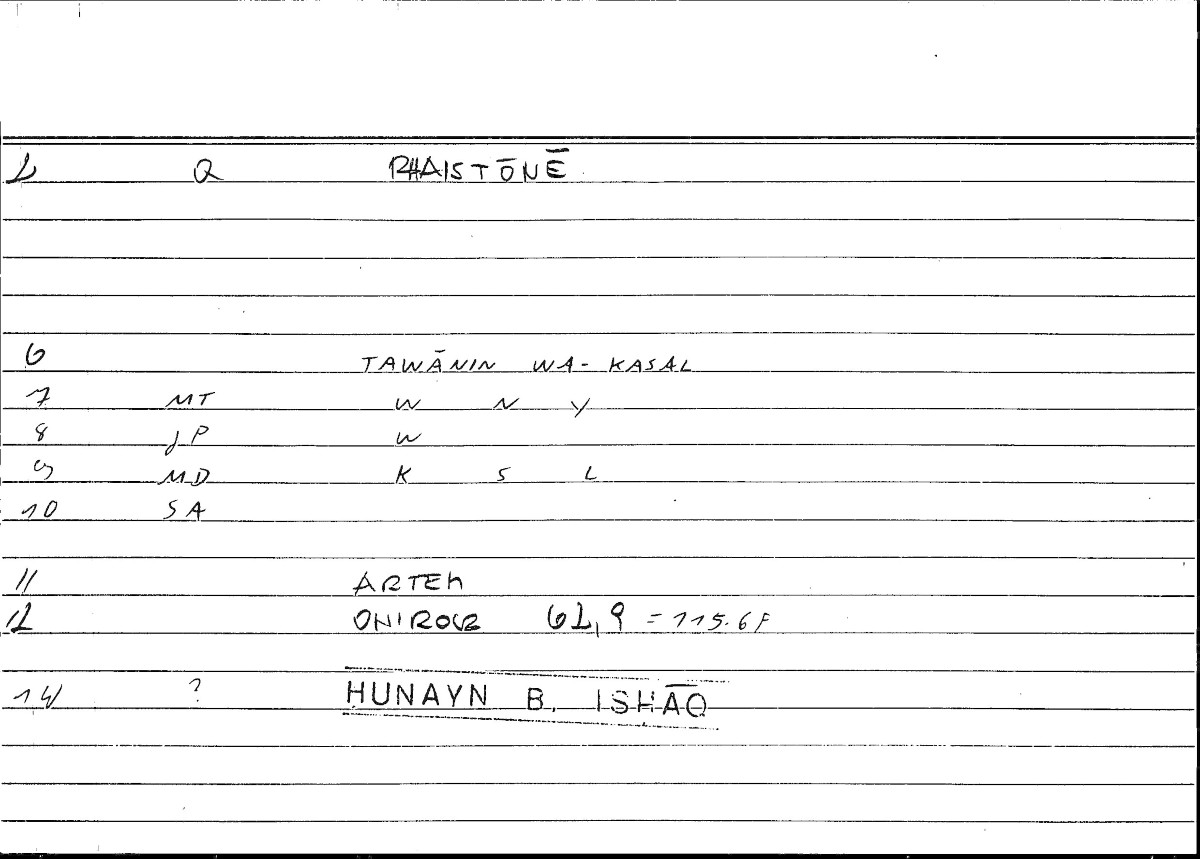 2 Q RHAISTŌNĒ
6 TAWĀNIN WA- KASAL
7 MT W N Y
8 JP W
9 MD K S L
10 SA
11 ARTEM
12 ONIROCR 62,9 = 115.6F
14 ? HUNAYN B. ISHĀQ